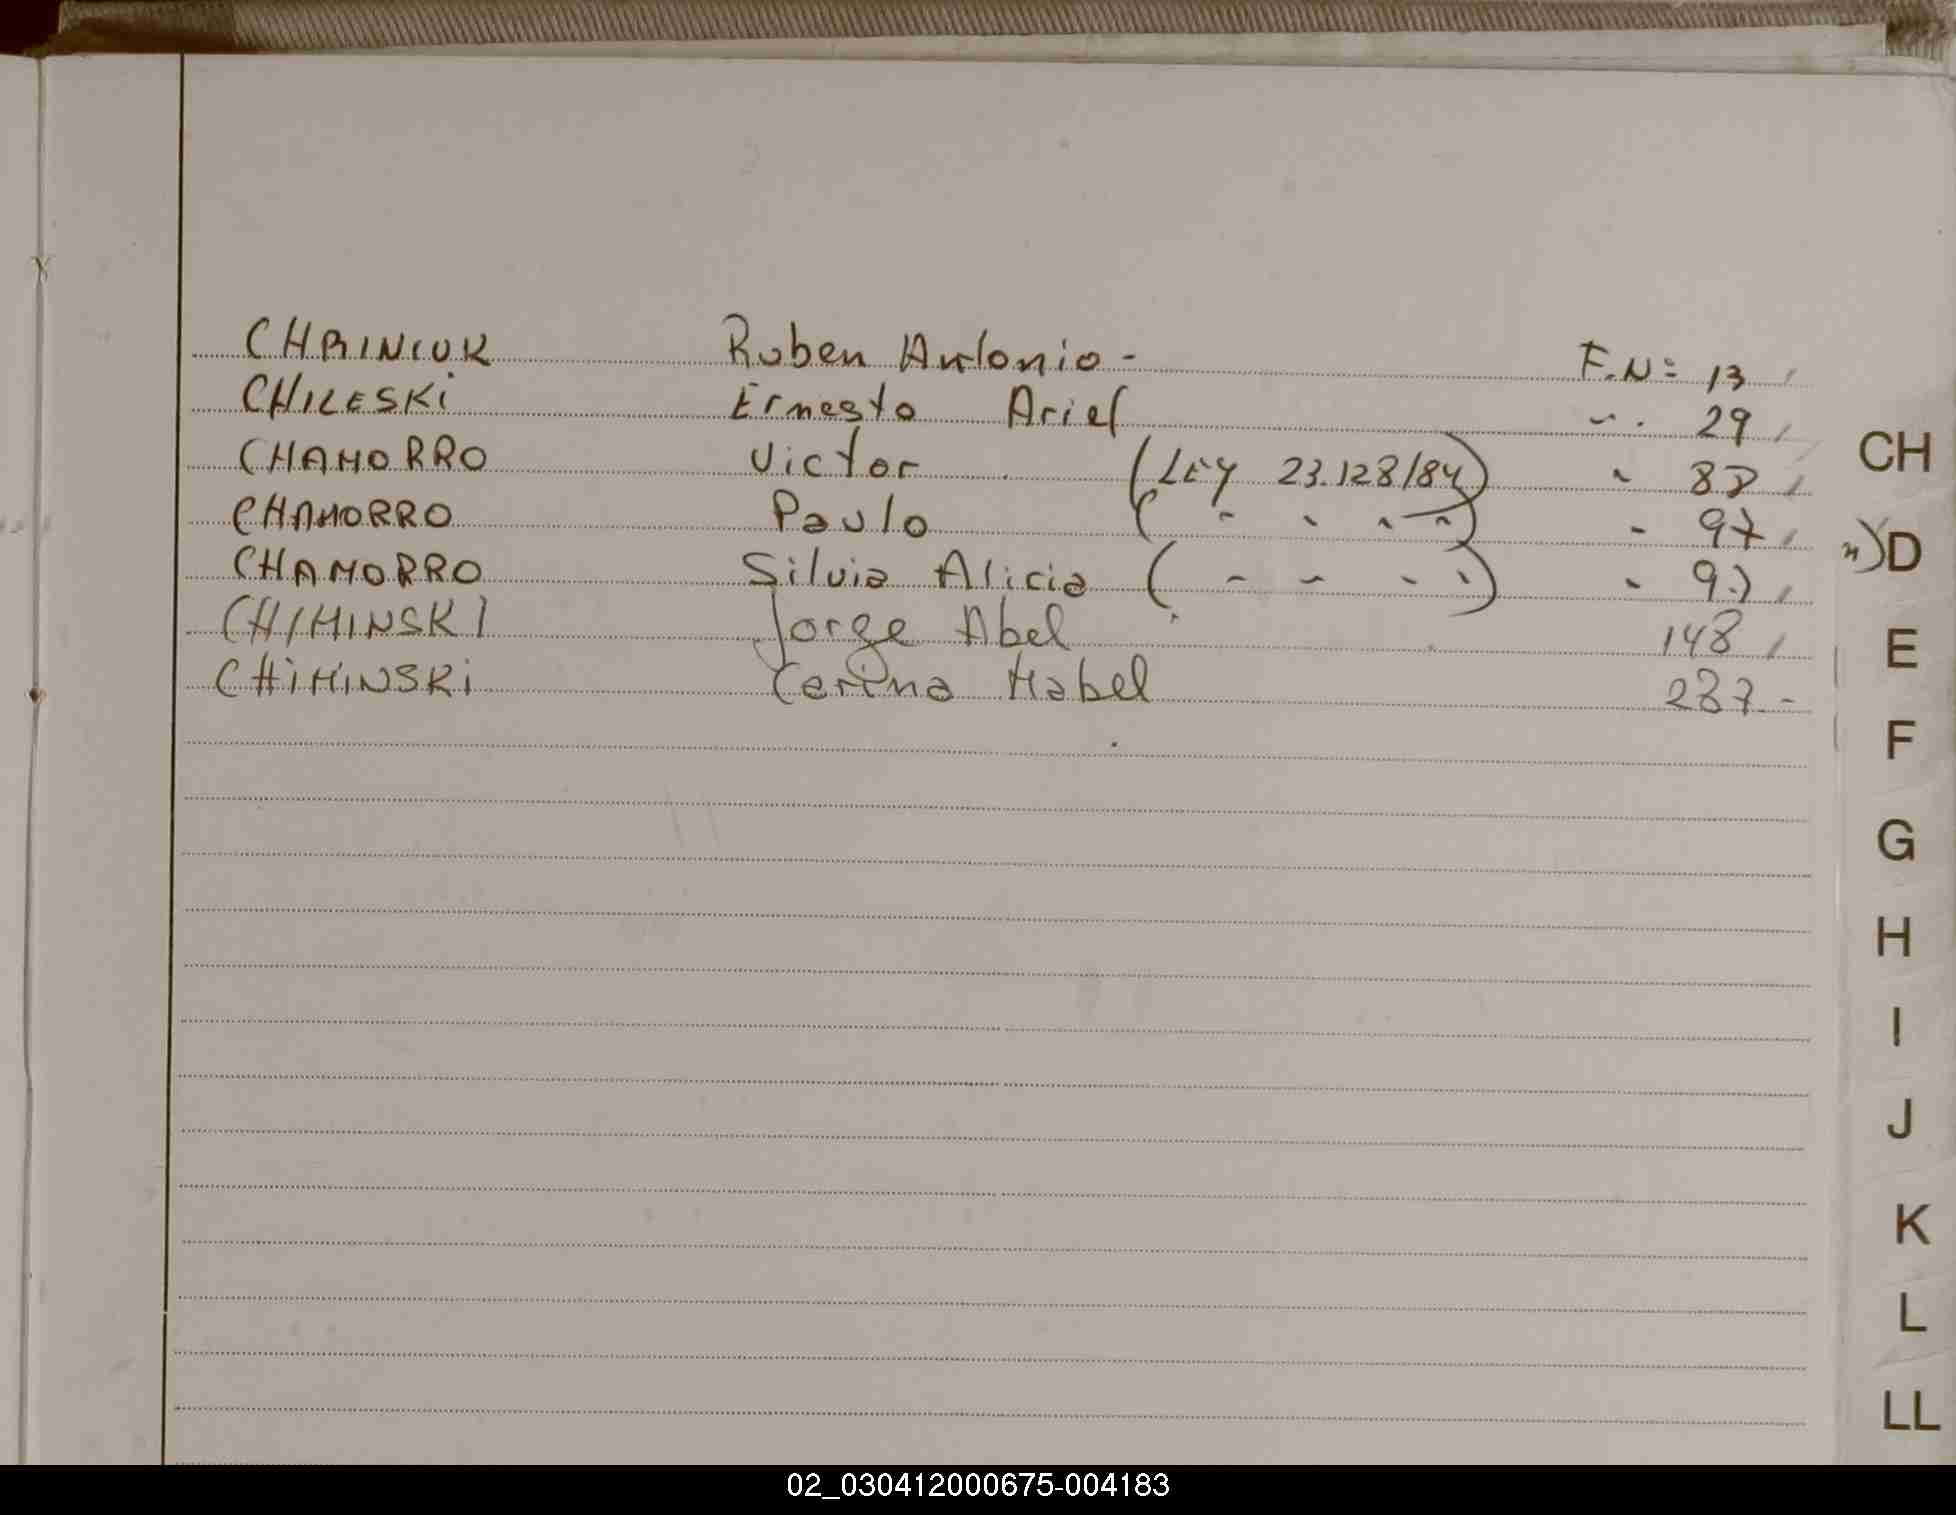 CHRINIUK Ruben Antonio - F.N= 13
CHILESKi Ernesto Ariel " . 29
CHAMORRO Victor (Ley 23.128/84) " 88
CHAMORRO Paulo ( " " " " ) " 97
CHAMORRO Silvia Alicia ( " " " " ) " 97
CHIMINSKI Jorge Abel 148
CHiMiNSKi Cerina Mabel 237 -
CH
D
E
F
G
H
I
J
K
L
LL
02_030412000675-004183